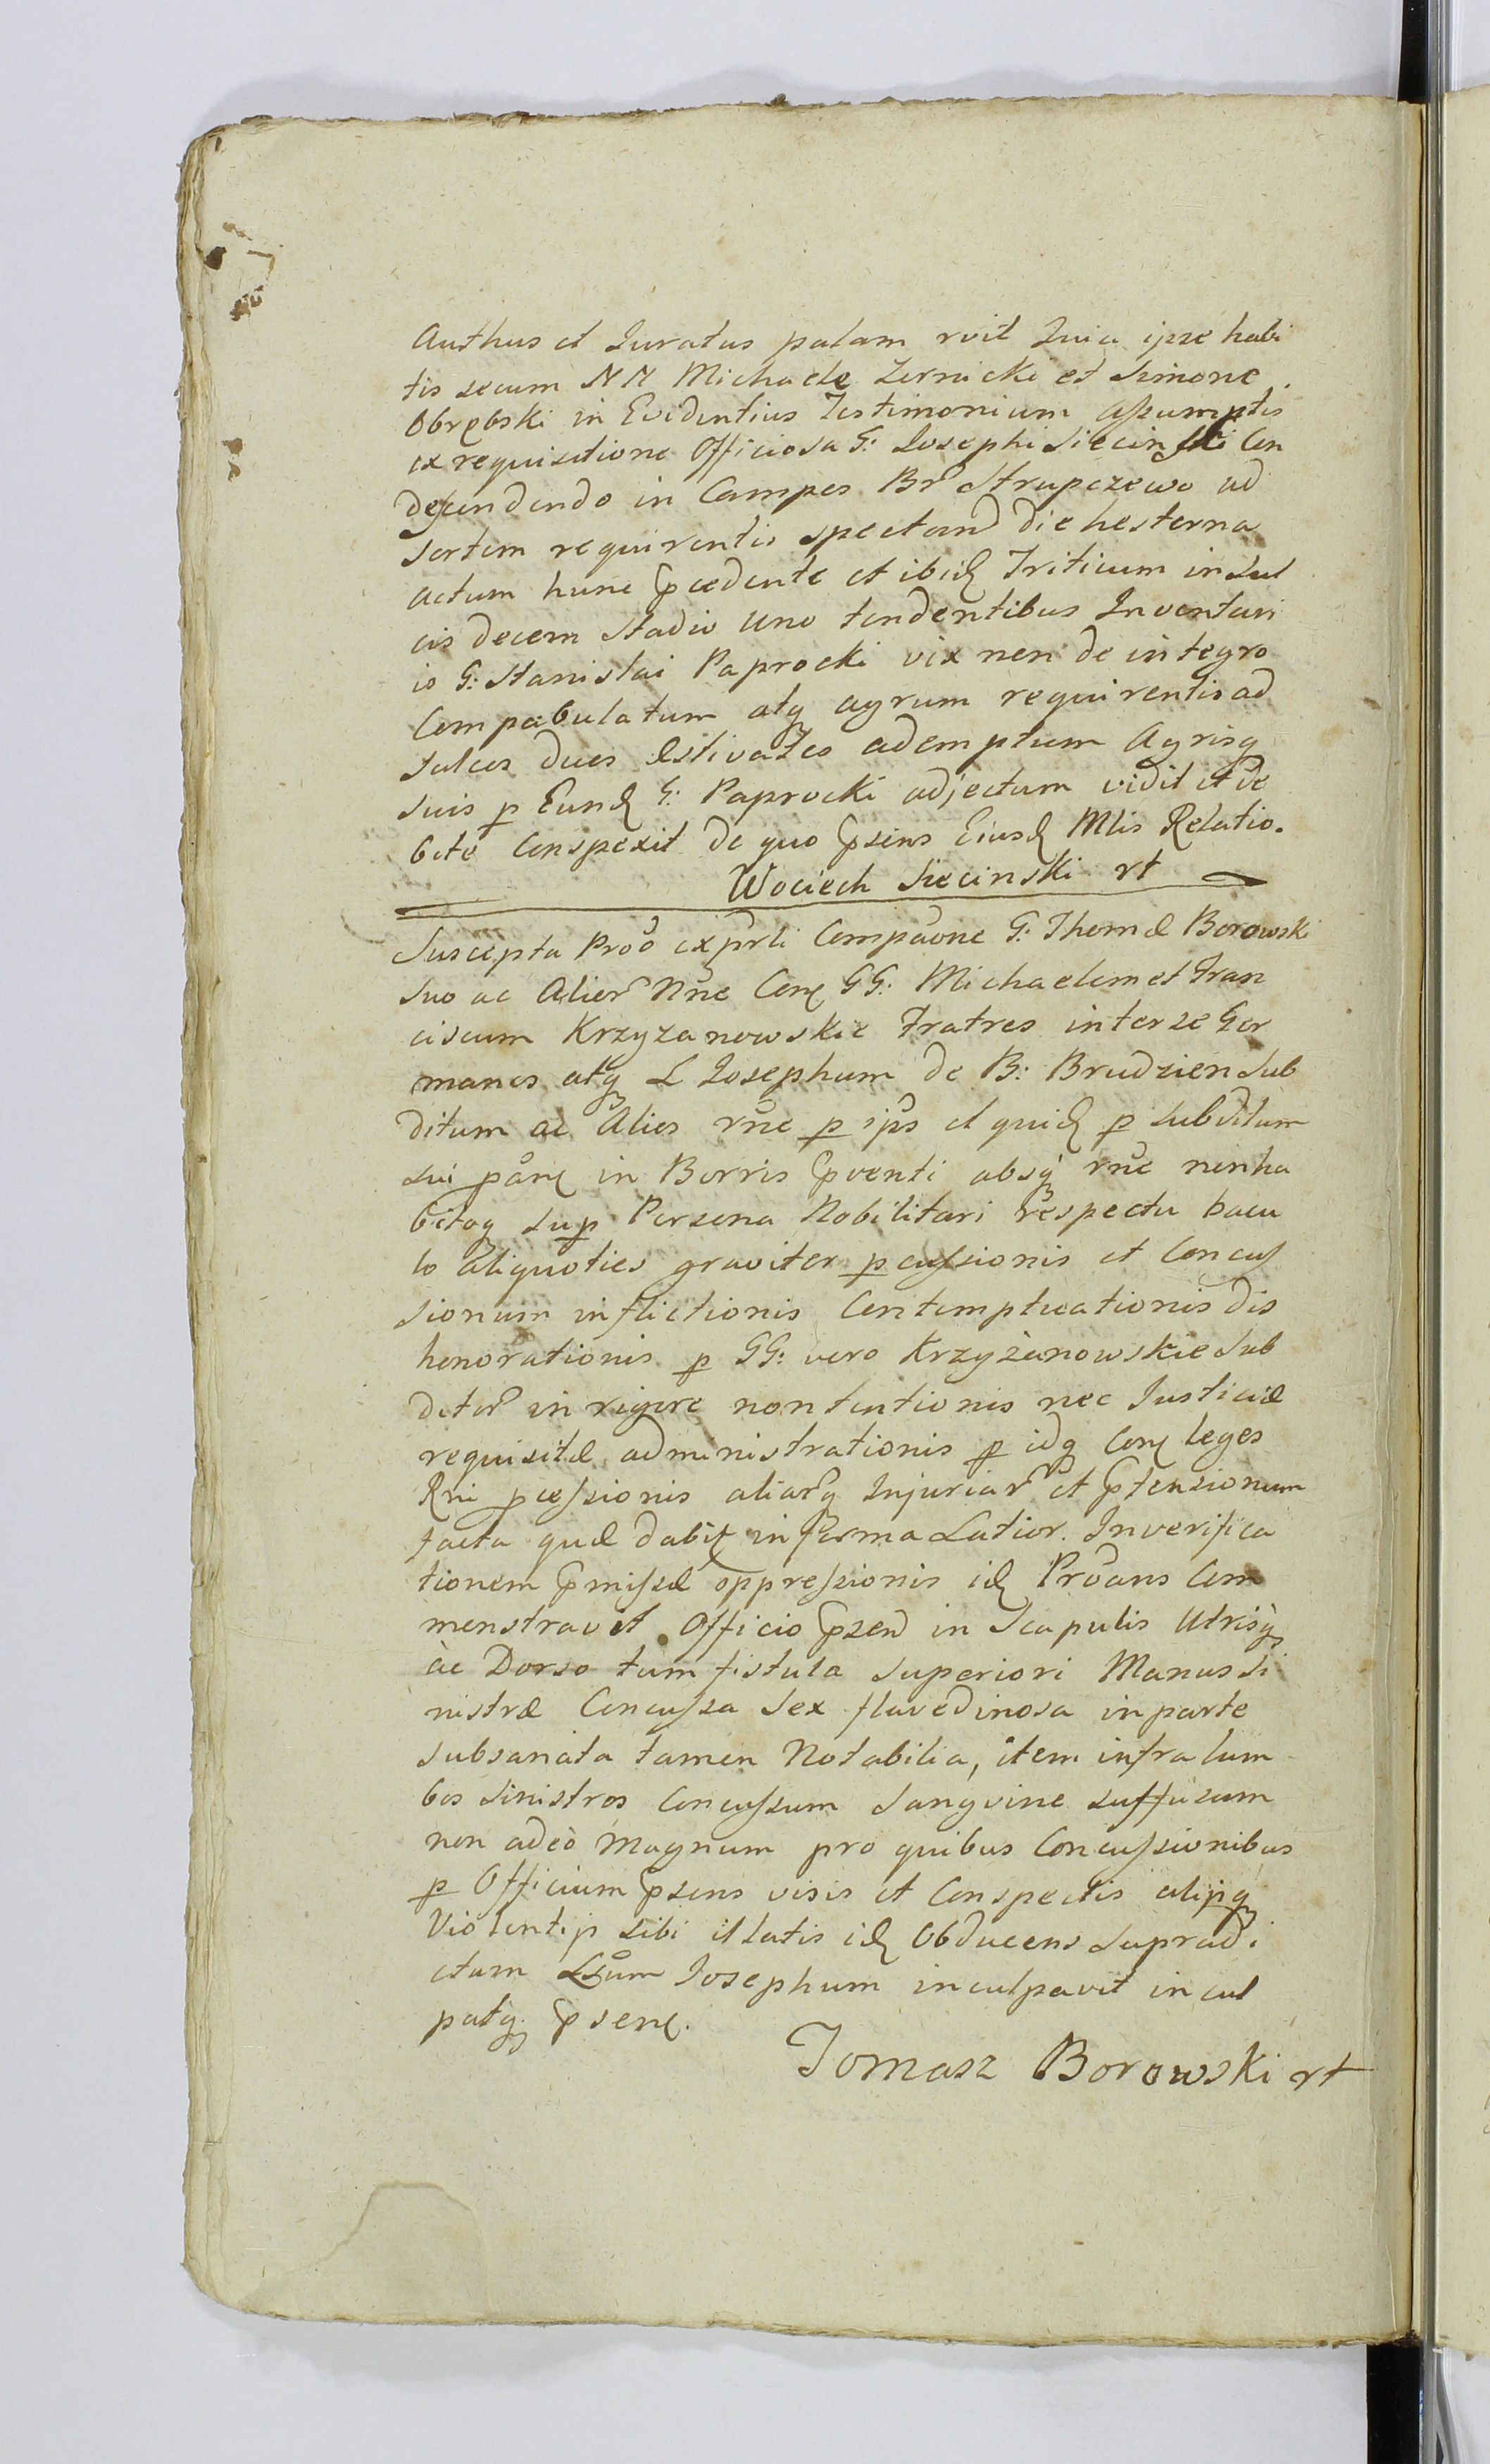 Authus et Juratus palam rvit Quia ipse habi
tis secum NN Michaele Zernicki et Simone
Obrębski in Evidentius Testimonium assumptis
ex requisitione Officiosa G: Josephi Siecinski Con
descendendo in Campos Br Strupczewo ad
Sortem requirentis spectand die hesterna
actum hunc pcedente et ibid Triticum in Sul
cis decem Stadio Uno tendentibus Inventari
io G: Stanislai Paprocki vix non de integro
Compabulatum atq agrum requirentis ad
Sulcos duos Æstivales ademptum Agrisq
suis p Eund G: Paprocki adjectum vidit et de
bete Conspexit de quo psens Eiusd Mlis Relatio.
Wociech Siecinski rt
Suscepta Proō ex prli Compaōne G: Thomæ Borowski
Suo ac Alior Nne Con GG: Michaelem et Fran
ciscum Krzyzanowskie Fratres inter se Ger
manos atq L Josephum de B: Brudzien Sub
ditum ac Alios rne p ips et quid p Subditum
Sui parte in Borris pventi absq rne non ha
bitoq Sup Persona Nobilitari respectu bacu
lo aliquoties graviter pcussionis et Concus
sionum inflictionis Contemptuationis dis
honorationis p GG: vero Krzyżanowskie Sub
ditor in rigore non tentionis nec Justiciæ
requisitæ administrationis p idq Con leges
Rni pcessionis aliarq Injuriar et ptensionum
facta quæ dabit in forma Latior. In verifica
tionem pmissæ oppressionis id Proans Com
monstravit Officio psend in Scapulis Utrisq
ac Dorso tum fistula superiori Manus Si
nistræ Concussa Sex flavedinosa in parte
subsanata tamen Notabilia, item infra lum
bos Sinistros Concussum Sangvine suffusum
non adeò Magnum pro quibus Concussionibus
p Officium psens visis et Conspectis alijsq
Violentijs sibi illatis id Obducens Supradi
ctum Lsum Josephum inculpavit incul
patq psens.
Tomasz Borowski rt